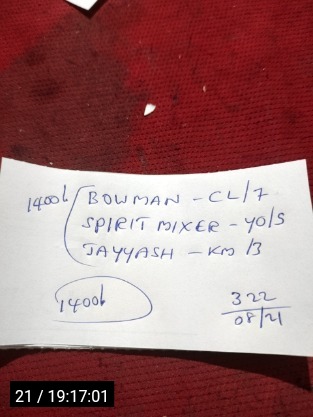 1400b BOWMAN - CL/7
SPIRIT MIXER - YO/S
JAYYASH - KM/3
1400b
322
08/21
21 / 19:17:01